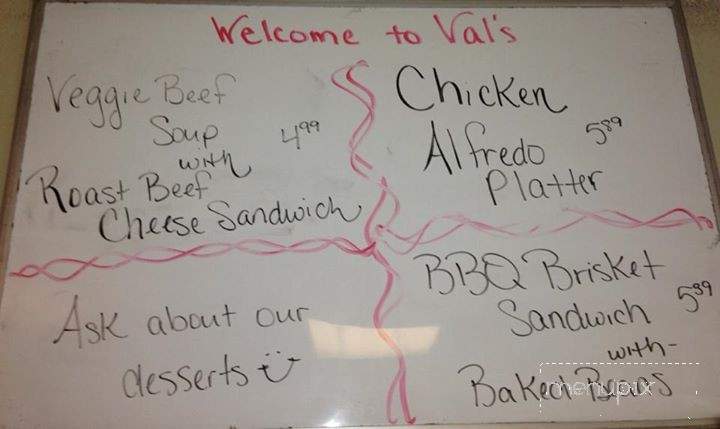 Welcome to Val's
Veggie Beef
Soup 4.99
with
Roast Beef
Cheese Sandwich
Chicken
Alfredo 5.89
Platter
Ask about our
desserts
BBQ Brisket
Sandwich 5.89
with-
Baked Beans
menupix